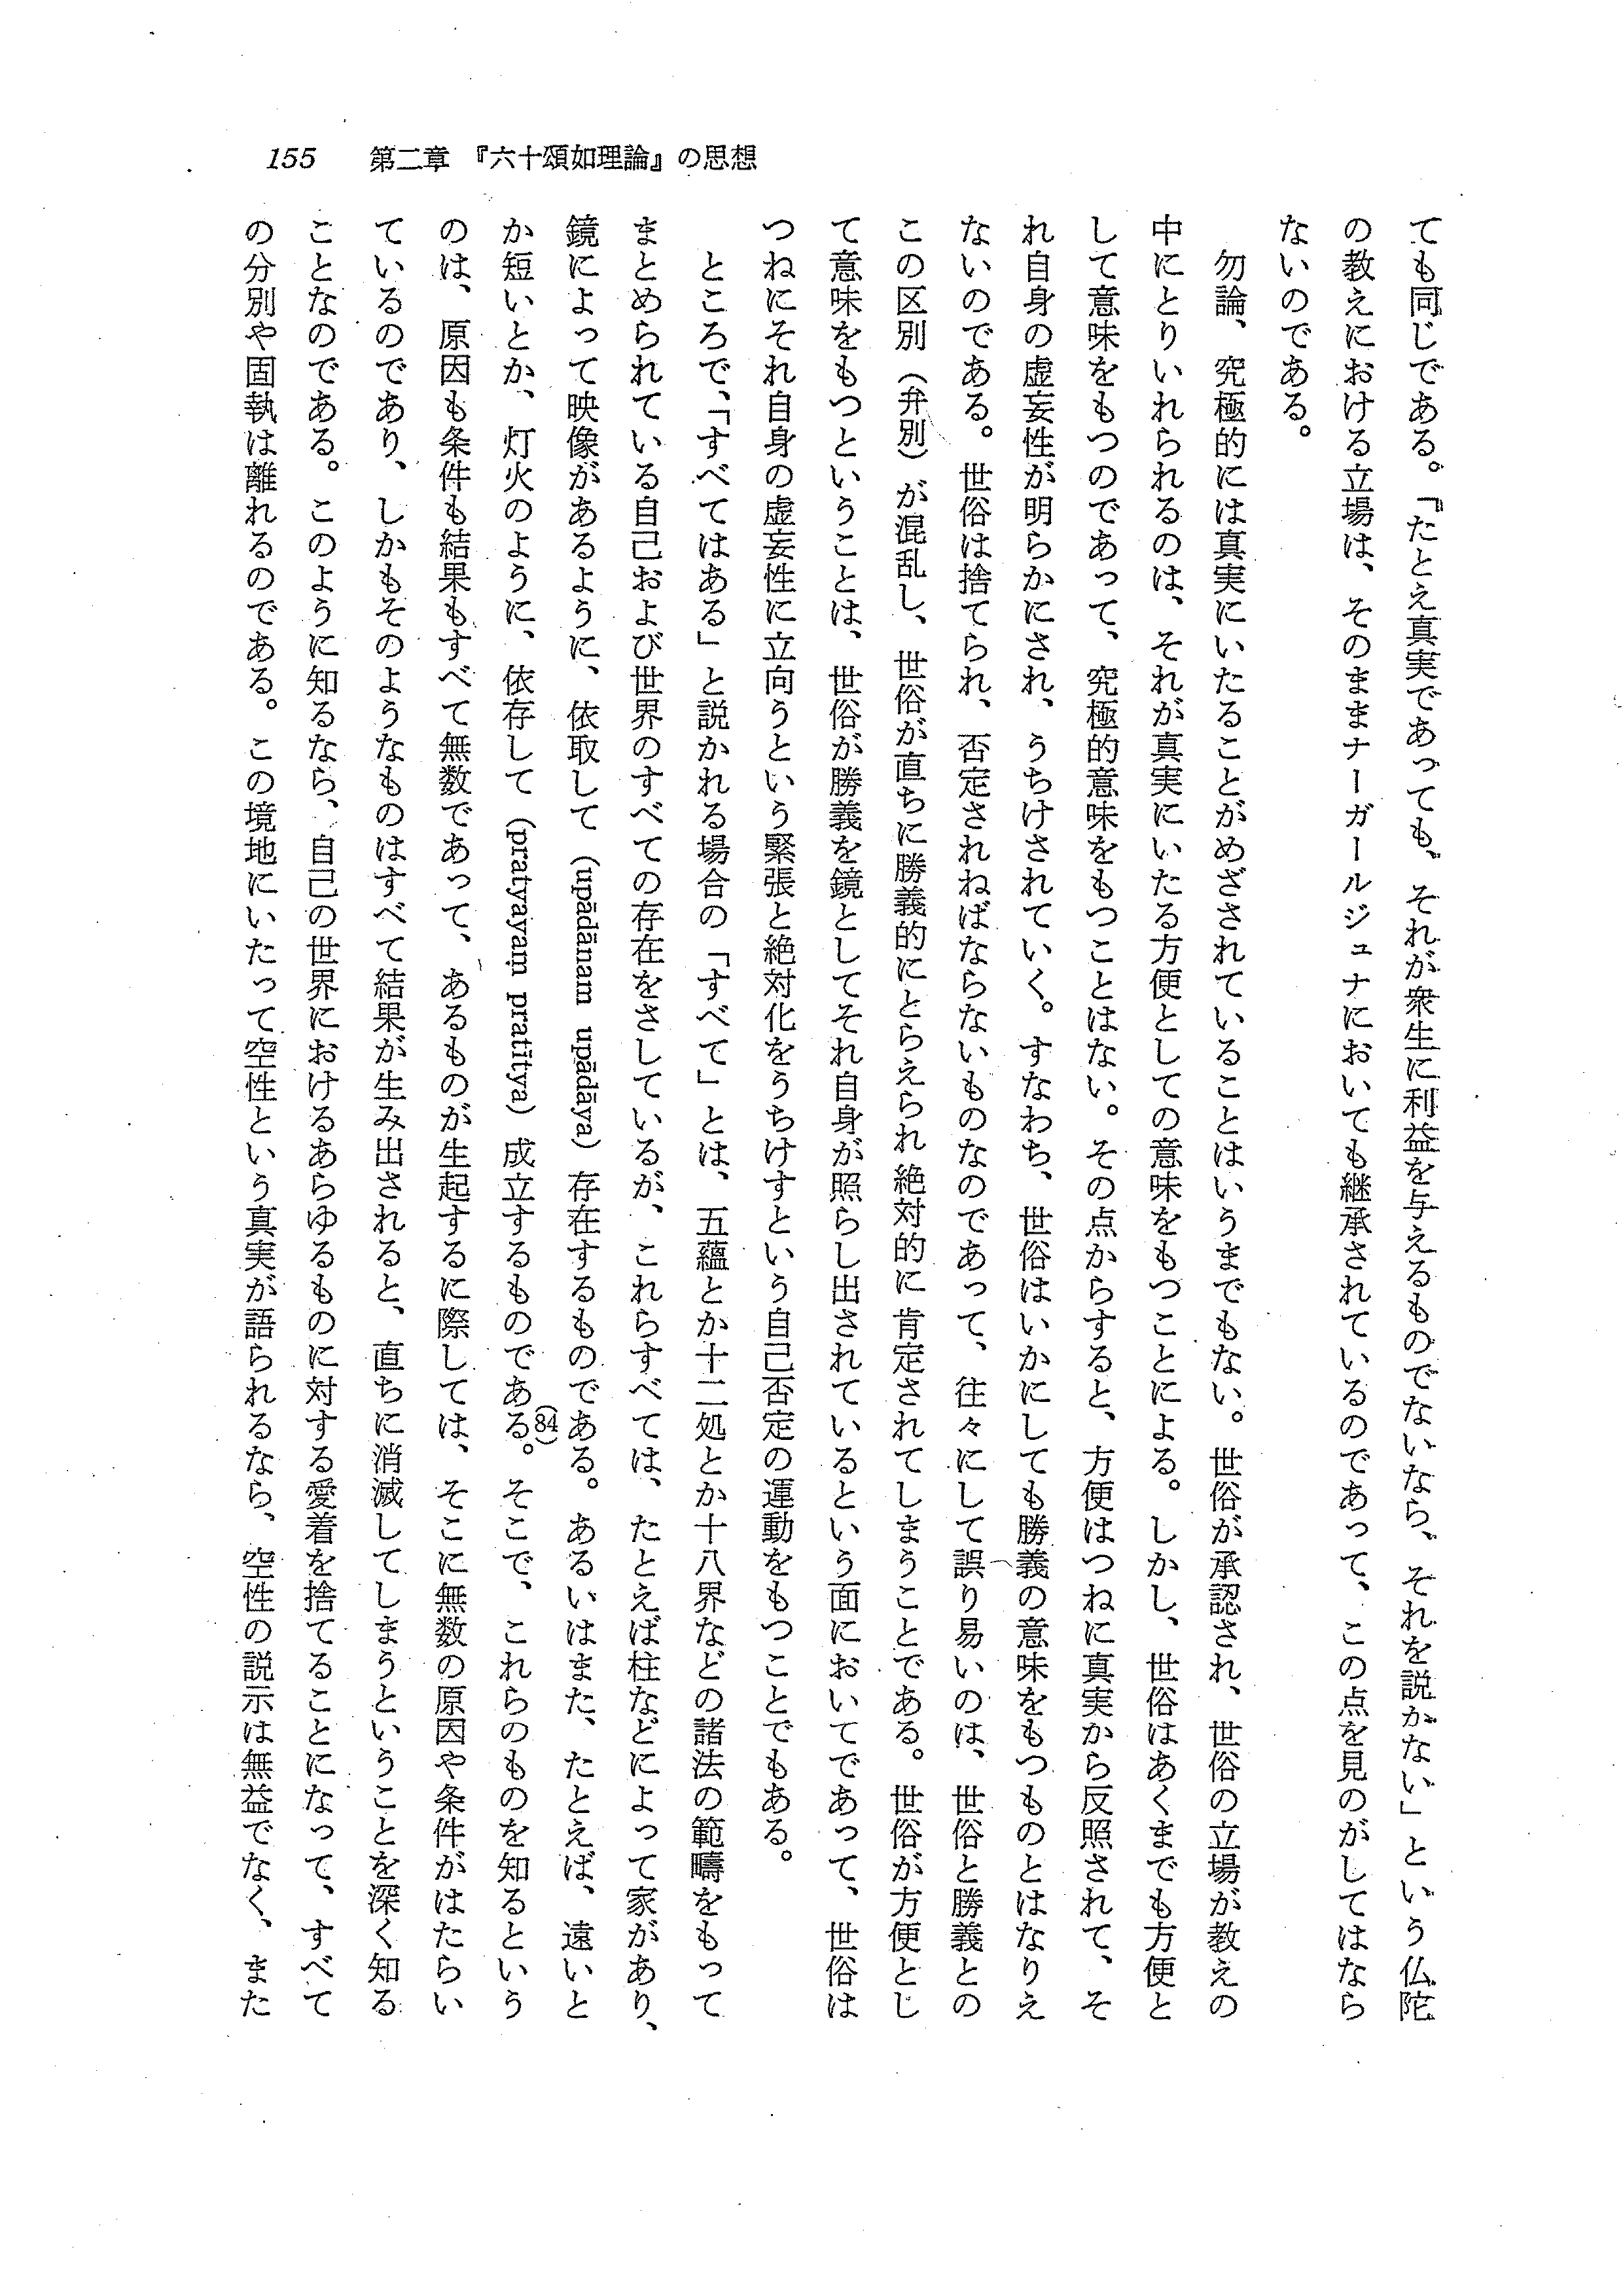 155　第二章　『六十頌如理論』の思想
ても同じである。「たとえ真実であっても、それが衆生に利益を与えるものでないなら、それを説かない」という仏陀
の教えにおける立場は、そのままナーガールジュナにおいても継承されているのであって、この点を見のがしてはなら
ないのである。
　勿論、究極的には真実にいたることがめざされていることはいうまでもない。世俗が承認され、世俗の立場が教えの
中にとりいれられるのは、それが真実にいたる方便としての意味をもつことによる。しかし、世俗はあくまでも方便と
して意味をもつのであって、究極的意味をもつことはない。その点からすると、方便はつねに真実から反照されて、そ
れ自身の虚妄性が明らかにされ、うちけされていく。すなわち、世俗はいかにしても勝義の意味をもつものとはなりえ
ないのである。世俗は捨てられ、否定されねばならないものなのであって、往々にして誤り易いのは、世俗と勝義との
この区別（弁別）が混乱し、世俗が直ちに勝義的にとらえられ絶対的に肯定されてしまうことである。世俗が方便とし
て意味をもつということは、世俗が勝義を鏡としてそれ自身が照らし出されているという面においてであって、世俗は
つねにそれ自身の虚妄性に立向うという緊張と絶対化をうちけすという自己否定の運動をもつことでもある。
　ところで、「すべてはある」と説かれる場合の「すべて」とは、五蘊とか十二処とか十八界などの諸法の範疇をもって
まとめられている自己および世界のすべての存在をさしているが、これらすべては、たとえば柱などによって家があり、
鏡によって映像があるように、依取して（upādānam upādāya）存在するものである。あるいはまた、たとえば、遠いと
か短いとか、灯火のように、依存して（pratyayaṃ pratītya）成立するものである。(84)そこで、これらのものを知るという
のは、原因も条件も結果もすべて無数であって、あるものが生起するに際しては、そこに無数の原因や条件がはたらい
ているのであり、しかもそのようなものはすべて結果が生み出されると、直ちに消滅してしまうということを深く知る
ことなのである。このように知るなら、自己の世界におけるあらゆるものに対する愛着を捨てることになって、すべて
の分別や固執は離れるのである。この境地にいたって空性という真実が語られるなら、空性の説示は無益でなく、また